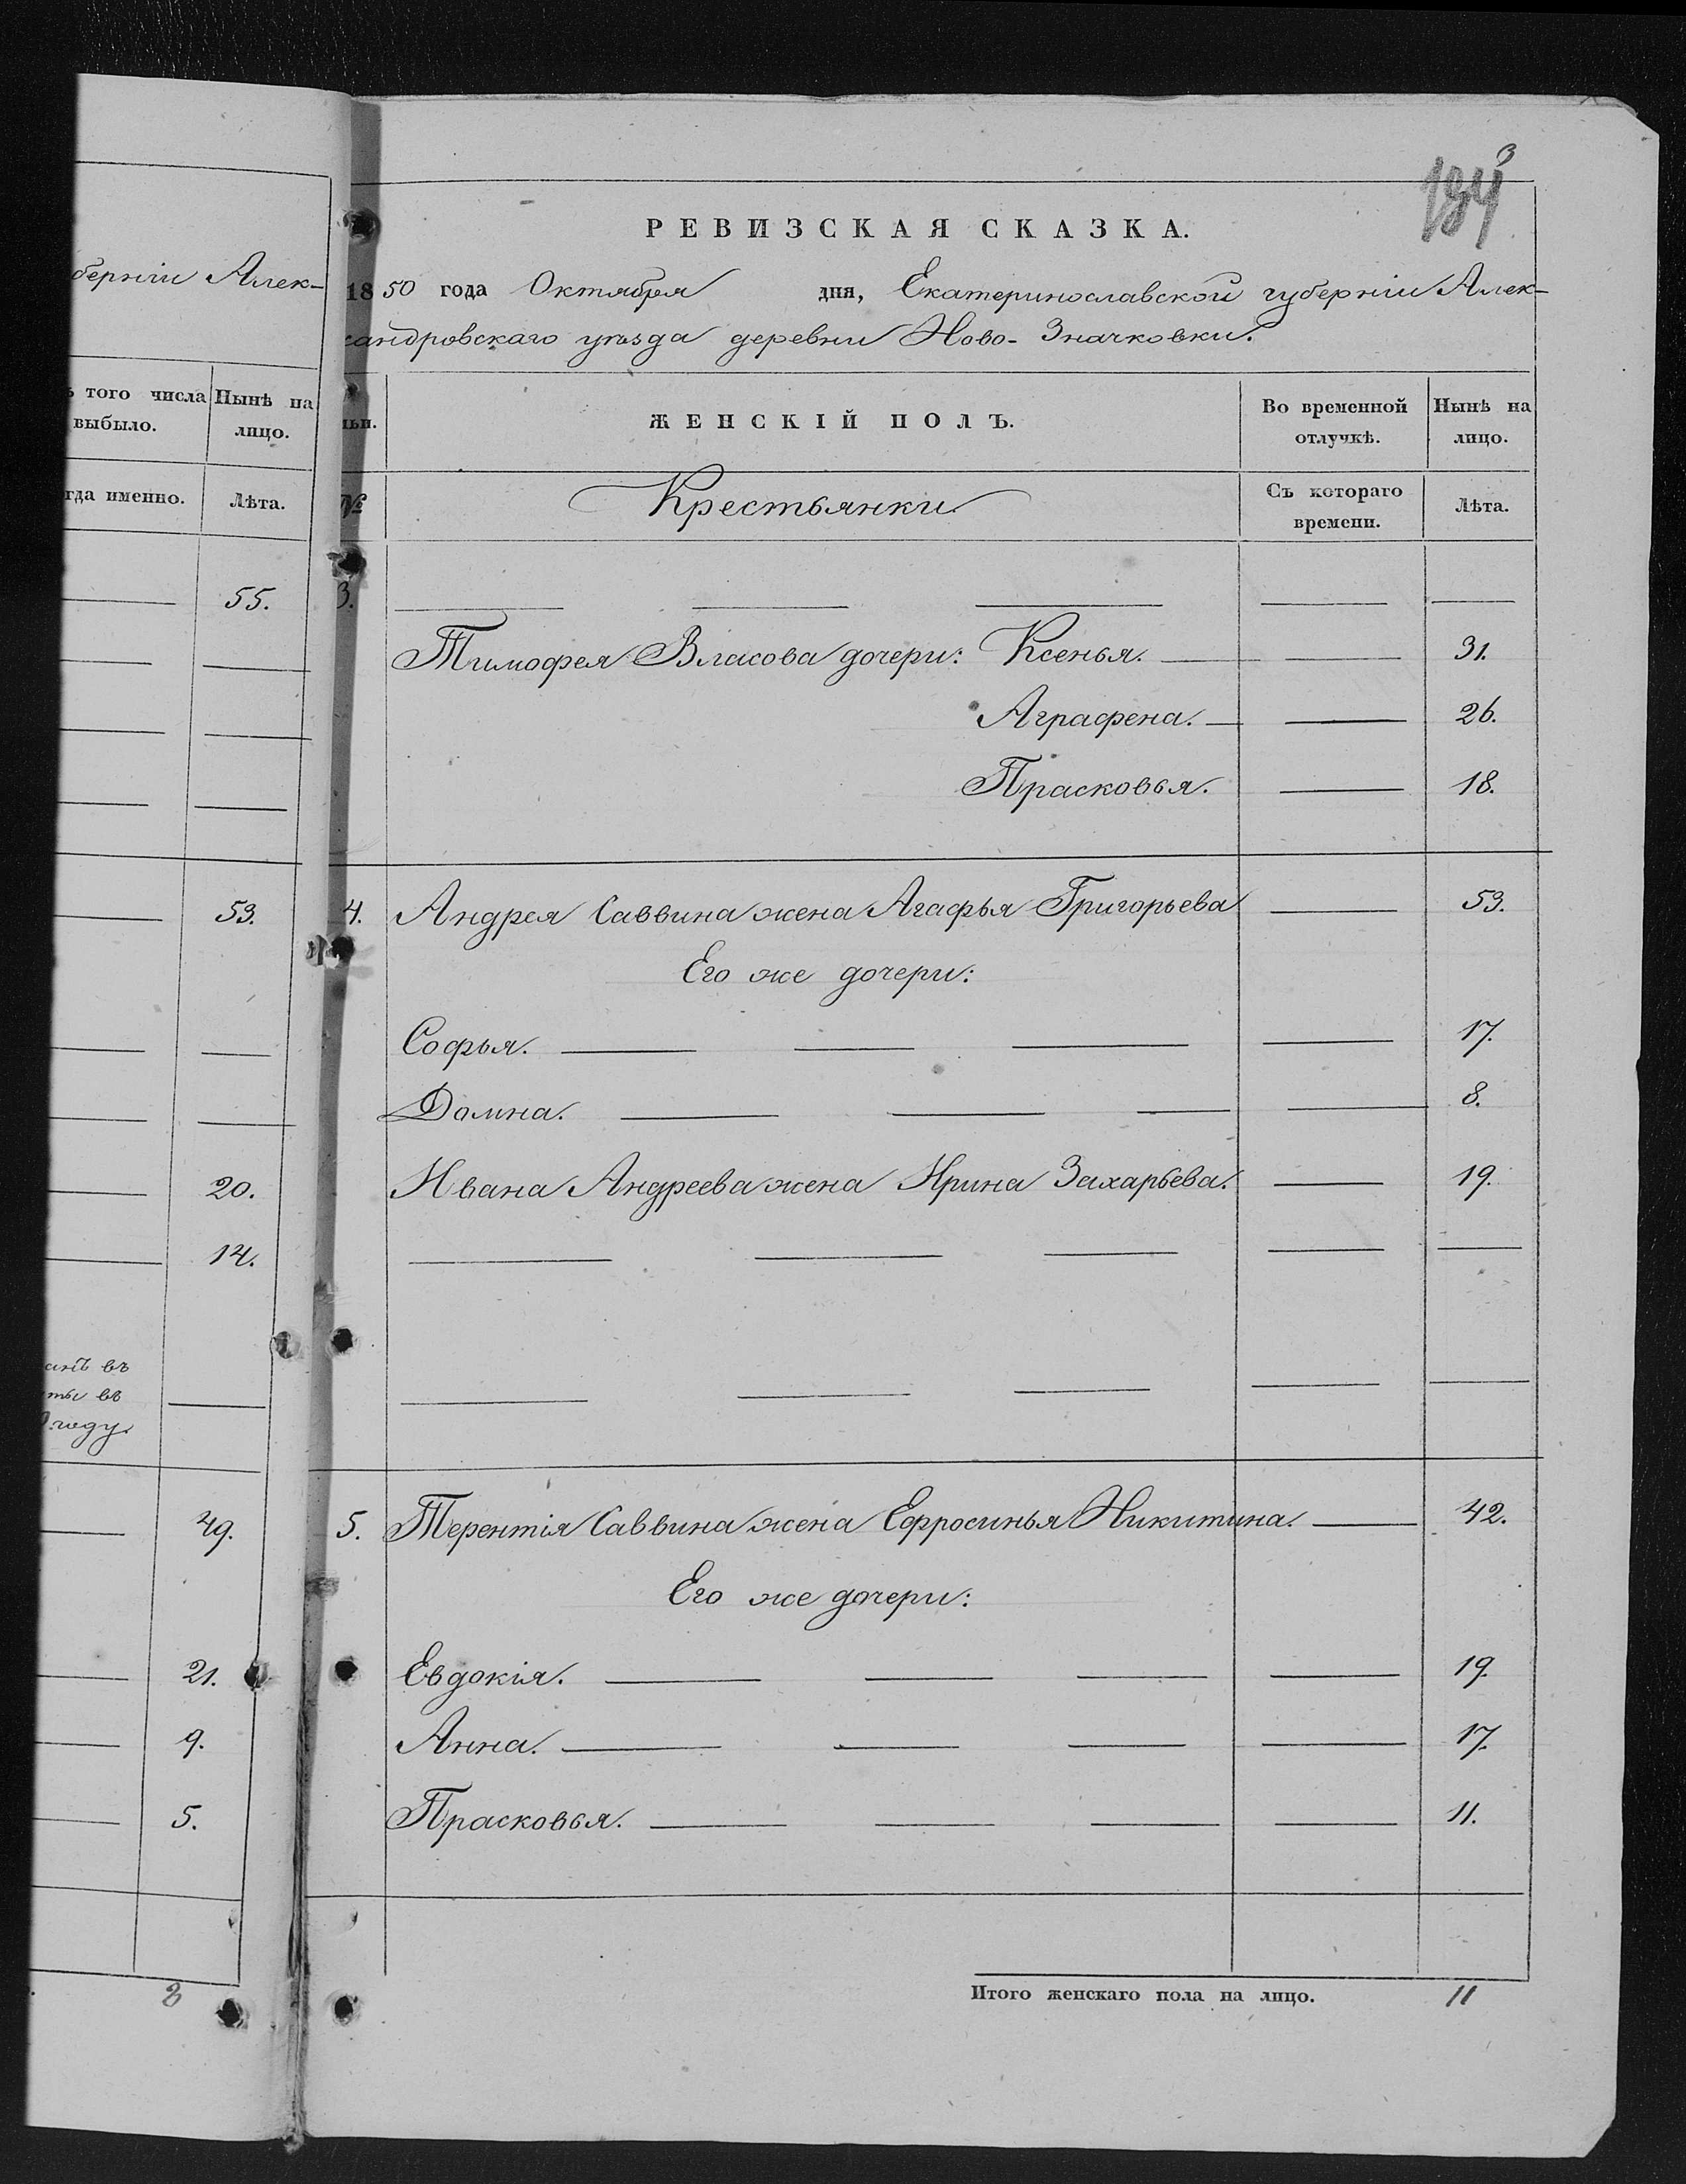 берніи Алек-
того числа Нынѣ на
выбыло. лицо.
гда именно. Лѣта.
55.
53.
20.
14.
въ
ты въ
году
49.
21.
9.
5.
8
3
184
РЕВИЗСКАЯ СКАЗКА.
1850 года Октября дня, Екатеринославской губерніи Алек-
сандровскаго уѣзда деревни Ново-Значковки.
ЖЕНСКІЙ ПОЛЪ. Во временной Нынѣ на
отлучкѣ. лицо.
№ Крестьянки Съ котораго Лѣта.
времени.
3.
Тимофея Власова дочери: Ксенья. 31.
Аграфена. 26.
Прасковья. 18.
4. Андрея Саввина жена Агафья Григорьева 53.
Его же дочери:
Софья. 17.
Домна. 8.
Ивана Андреева жена Ирина Захарьева. 19.
5. Терентія Саввина жена Ефросинья Никитина. 42.
Его же дочери:
Евдокія. 19.
Анна. 17.
Прасковья. 11.
Итого женскаго пола на лицо. 11